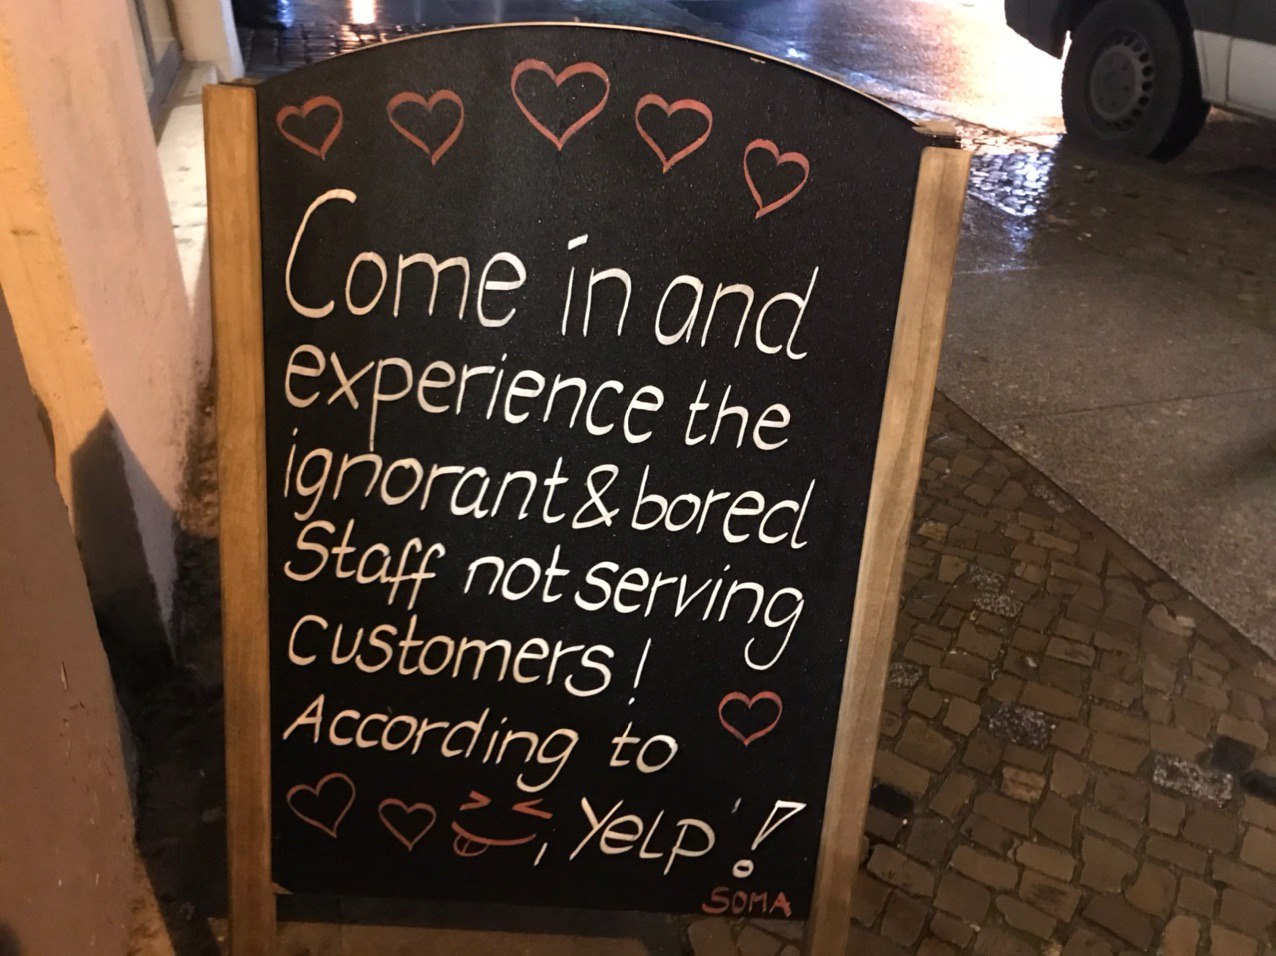 Come in and
experience the
ignorant & bored
Staff not serving
customers!
According to
,Yelp'!
SOMA